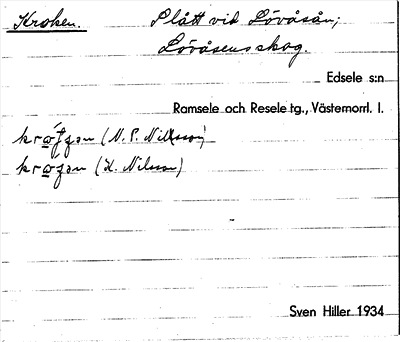 Kroken. Slått vid Lövåsån;
Lövåsens skog.
Edsele s:n
Ramsele och Resele tg., Västernorrl. l.
(N. P. Nilsson)
(K. Nilsson)
Sven Hiller 1934